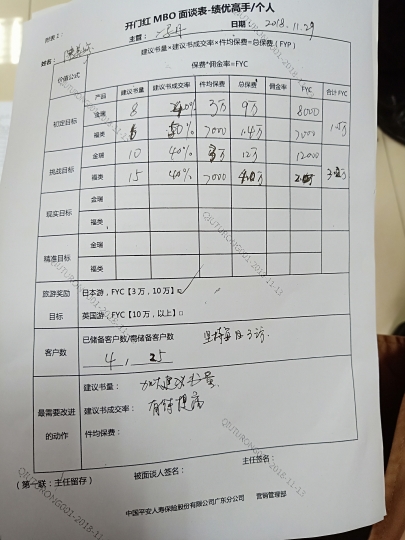 开门红 MBO 面谈表-绩优高手/个人
附表：
姓名： 主管： 日期： 2018.11.29
建议书量×建议书成交率×件均保费=总保费(FYP)
价值公式 保费*佣金率=FYC
产品 建议书量 建议书成交率 件均保费 总保费 佣金率 FYC 合计FYC
初定目标 金瑞 8 3万 9万 8000
福类 50% 7000 1.4万 7000
挑战目标 金瑞 10 40% 3万 12万 12000
福类 15 40% 7000
现实目标 金瑞
福类
精准目标 金瑞
福类
旅游奖励 日本游，FYC【3万，10万】
目标 英国游，FYC【10万，以上】□
客户数 已储备客户数/需储备客户数 坚持每日3访
4，25
最需要改进的动作 建议书量： 加大建议书量
建议书成交率： 有待提高
件均保费：
被面谈人签名： 主任签名：
（第一联：主任留存）
中国平安人寿保险股份有限公司广东分公司 营销管理部